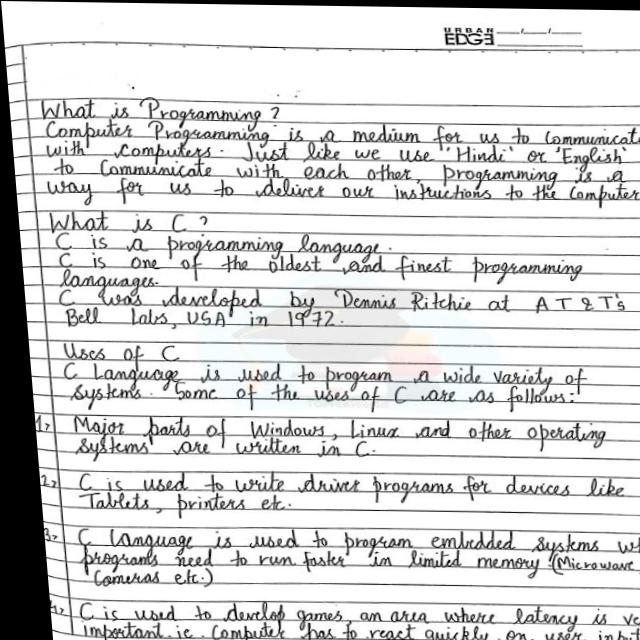 URBAN
EDGE
What is Programming ?
Computer Programming is a medium for us to Communicat
with computers. Just like we use "Hindi" or 'English'
to Communicate with each other, programming is a
way for us to deliver our instructions to the Computer
What is C ?
C is a programming language.
C is one of the oldest and finest programming
languages.
C was developed by Dennis Ritchie at AT&T's
Bell Labs, USA in 1972.
Uses of C
C Language is used to program a wide variety of
systems. Some of the uses of C are as follows:
1. Major parts of Windows, Linux and other operating
systems are written in C.
2. C is used to write driver programs for devices like
Tablets, printers etc.
3. C language is used to program embedded systems wh
programs need to run faster in limited memory (Microwave,
Cameras etc.)
4. C is used to develop games, an area where latency is ve
important. ie. Computer has to react quickly on user input